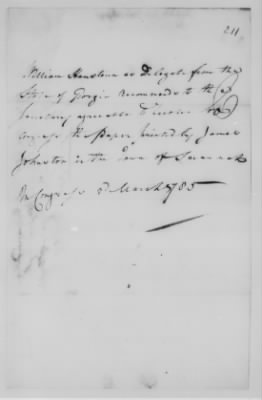 211
William Houstoun as Delegate from the
State of Georgia recommends to the
Secretary agreeable
Congress the Paper printed by James
Johnston in the Town of Savannah
In Congress 2d March 1785